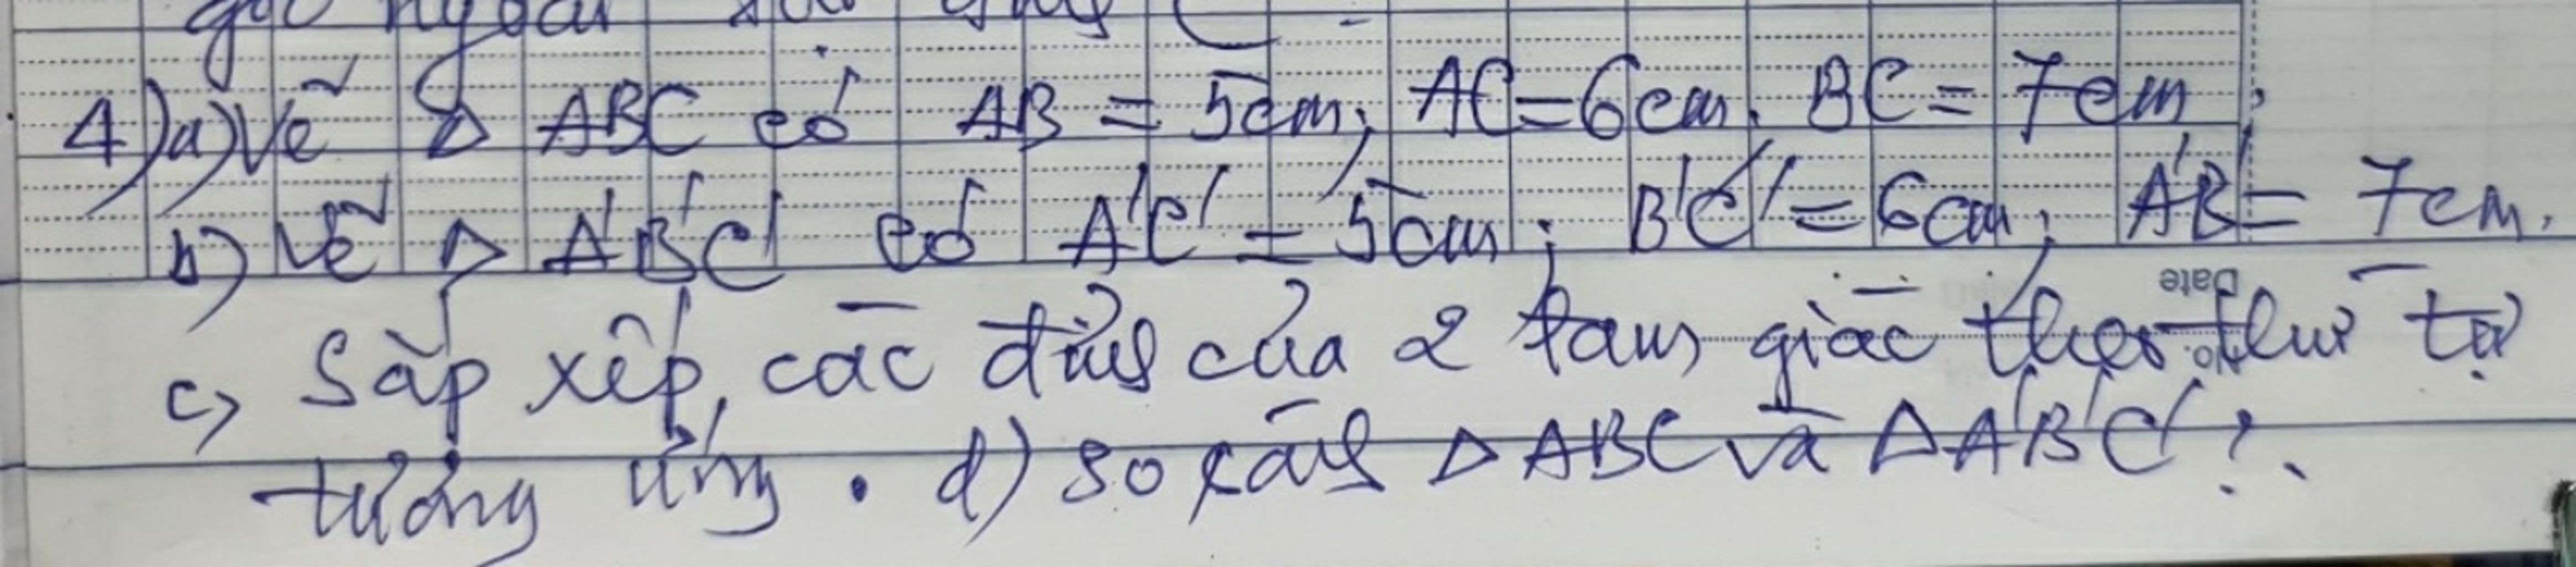 góc ngoài
4) a) Vẽ Δ ABC có AB = 5cm; AC = 6cm. BC = 7cm;
b) Vẽ Δ A'B'C' có A'C' = 5cm; B'C' = 6cm; A'B' = 7cm.
Date
c, Sắp xếp các đỉnh của 2 tam giác theo thứ tự
No.
tương ứng. d) so sánh Δ ABC và Δ A'B'C'?.